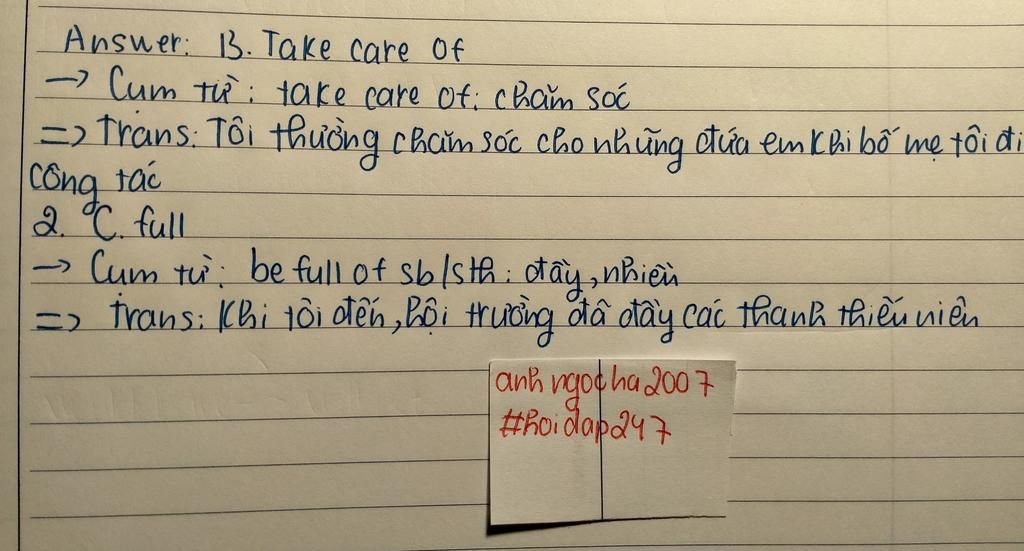 Answer: B. Take care of
→ Cụm từ: take care of: chăm sóc
=> Trans: Tôi thường chăm sóc cho những đứa em khi bố mẹ tôi đi
công tác
2. C. full
→ Cụm từ: be full of sb/sth: đầy, nhiều
=> trans: Khi tôi đến, hội trường đã đầy các thanh thiếu niên
anh ngocha2007
#hoidap247